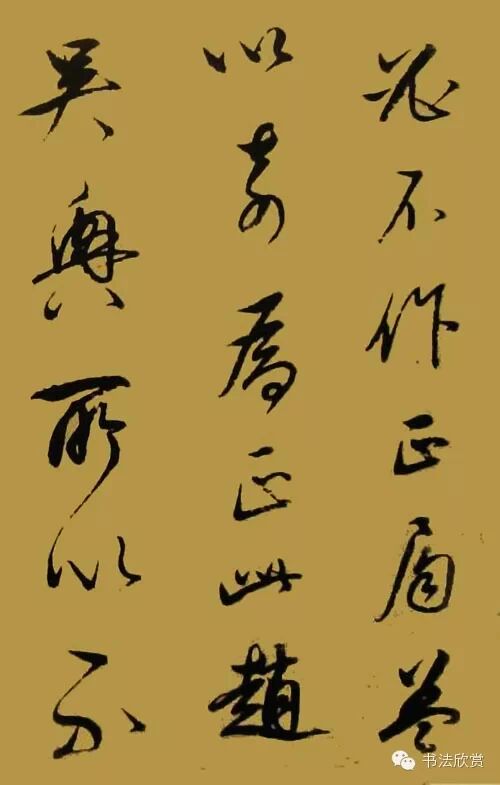 必不作正局蓋
以奇為正此趙
吳興所以不
书法欣赏